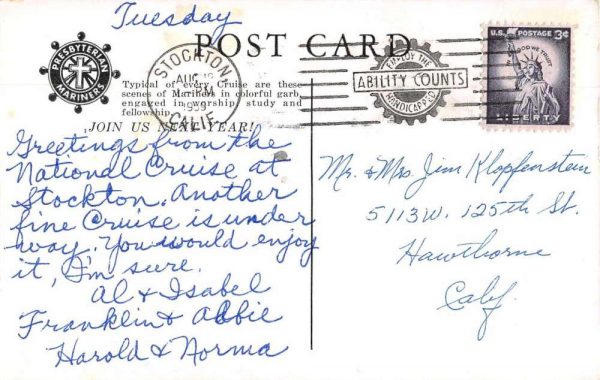 Tuesday
POST CARD
PRESBYTERIAN
MARINERS
STOCKTON
AUG 18
1959
CALIF.
EMPLOY THE
HANDICAPPED
ABILITY COUNTS
U.S. POSTAGE 3¢
IN GOD WE TRUST
LIBERTY
Typical of every Cruise are these
scenes of Mariners in colorful garb,
engaged in worship, study and
fellowship.
JOIN US NEXT YEAR!
Greetings from the
National Cruise at
Stockton. Another
fine Cruise is under
way. You would enjoy
it, I'm sure.
Al & Isabel
Franklin & Abbie
Harold & Norma
Mr. & Mrs Jim Klopfenstein
5113 W. 125th St.
Hawthorne
Calif.